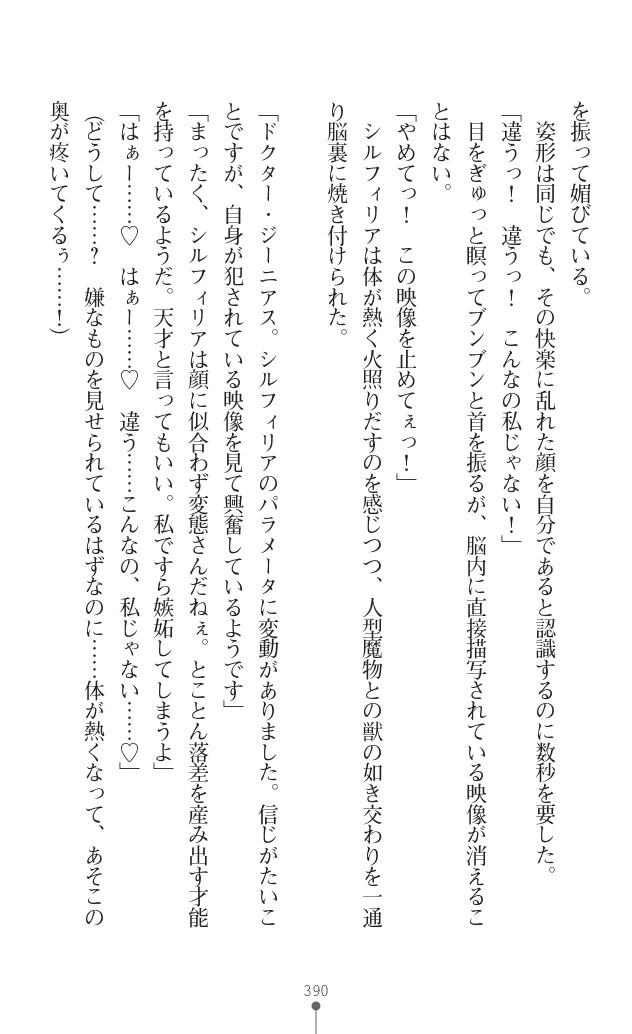 を振って媚びている。
　姿形は同じでも、その快楽に乱れた顔を自分であると認識するのに数秒を要した。
「違うっ！　違うっ！　こんなの私じゃない！」
　目をぎゅっと瞑ってブンブンと首を振るが、脳内に直接描写されている映像が消えるこ
とはない。
「やめてっ！　この映像を止めてぇっ！」
　シルフィリアは体が熱く火照りだすのを感じつつ、人型魔物との獣の如き交わりを一通
り脳裏に焼き付けられた。
「ドクター・ジーニアス。シルフィリアのパラメータに変動がありました。信じがたいこ
とですが、自身が犯されている映像を見て興奮しているようです」
「まったく、シルフィリアは顔に似合わず変態さんだねぇ。とことん落差を産み出す才能
を持っているようだ。天才と言ってもいい。私ですら嫉妬してしまうよ」
「はぁー……♡　はぁー……♡　違う……こんなの、私じゃない……♡」
（どうして……？　嫌なものを見せられているはずなのに……体が熱くなって、あそこの
奥が疼いてくるぅ……！）
390